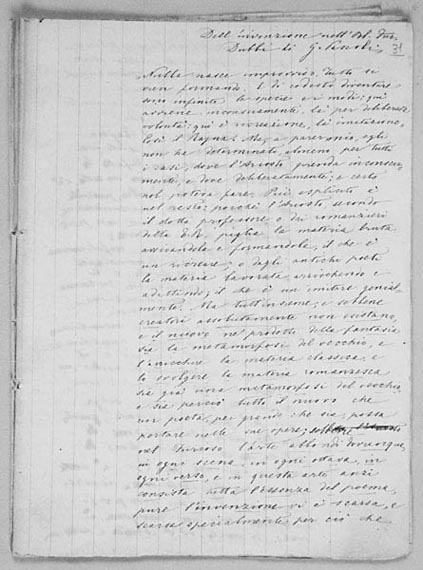 Dell'invenzione nell'Orl. Fur.
Dubbi di G. Pascoli. 31
Nulla nasce improvviso. Tutto si
vien formando. E di codesto diventare
sono infinite le specie e i modi; qui
avviene inconsciamente, là per deliberata
volontà; qui è creazione, là imitazione.
Così il Rajna. Ma, a parer mio, egli
non ha determinato, almeno per tutti
i casi, dove l'Ariosto prenda inconscia-
mente, e dove deliberatamente; e certo
nol poteva fare. Più esplicito è
nel resto; poichè l'Ariosto secondo
il dotto professore o dai romanzieri
della piglia la materia bruta
avvivandola e formandola, il che è
un ricreare; o dagli antichi poeti
la materia lavorata, arricchendo e
adattando; il che è un imitare genial-
mente. Ma tutt'insieme; e sebbene
creatori assolutamente non esistano,
e il nuovo ne' prodotti della fantasia
sia la metamorfosi del vecchio, e
l'arricchire la materia classica, e
lo svolgere la materia romanzesca
sia già una metamorfosi del vecchio,
e sia perciò tutto il nuovo che
un poeta, per grande che sia, possa
portare nelle sue opere;
nel Furioso l'arte abbondi dovunque,
in ogni scena, in ogni ottava, in
ogni verso, e in questa arte anzi
consista tutta l'essenza del poema,
pure l'invenzione vi è scarsa, e
scarsa specialmente per ciò che